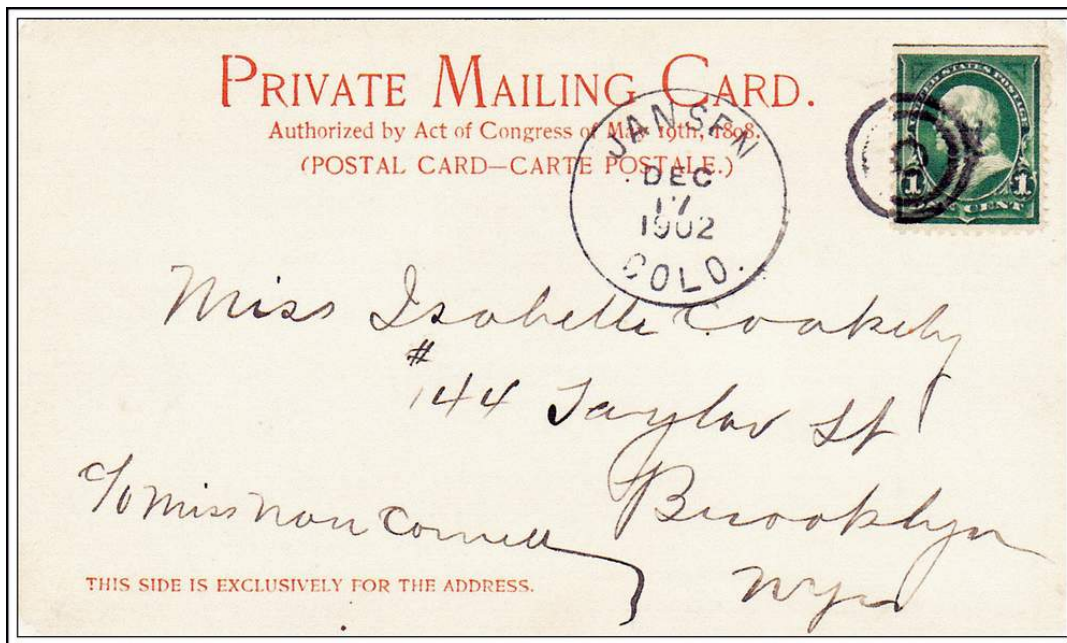 PRIVATE MAILING CARD.
Authorized by Act of Congress of May 19th, 1898.
(POSTAL CARD—CARTE POSTALE.)
JANSEN
DEC
17
1902
COLO.
UNITED STATES POSTAGE
1 1
ONE CENT
Miss Isabelle Coakely
# 144 Taylor St
Brooklyn
c/o Miss Nan
THIS SIDE IS EXCLUSIVELY FOR THE ADDRESS.